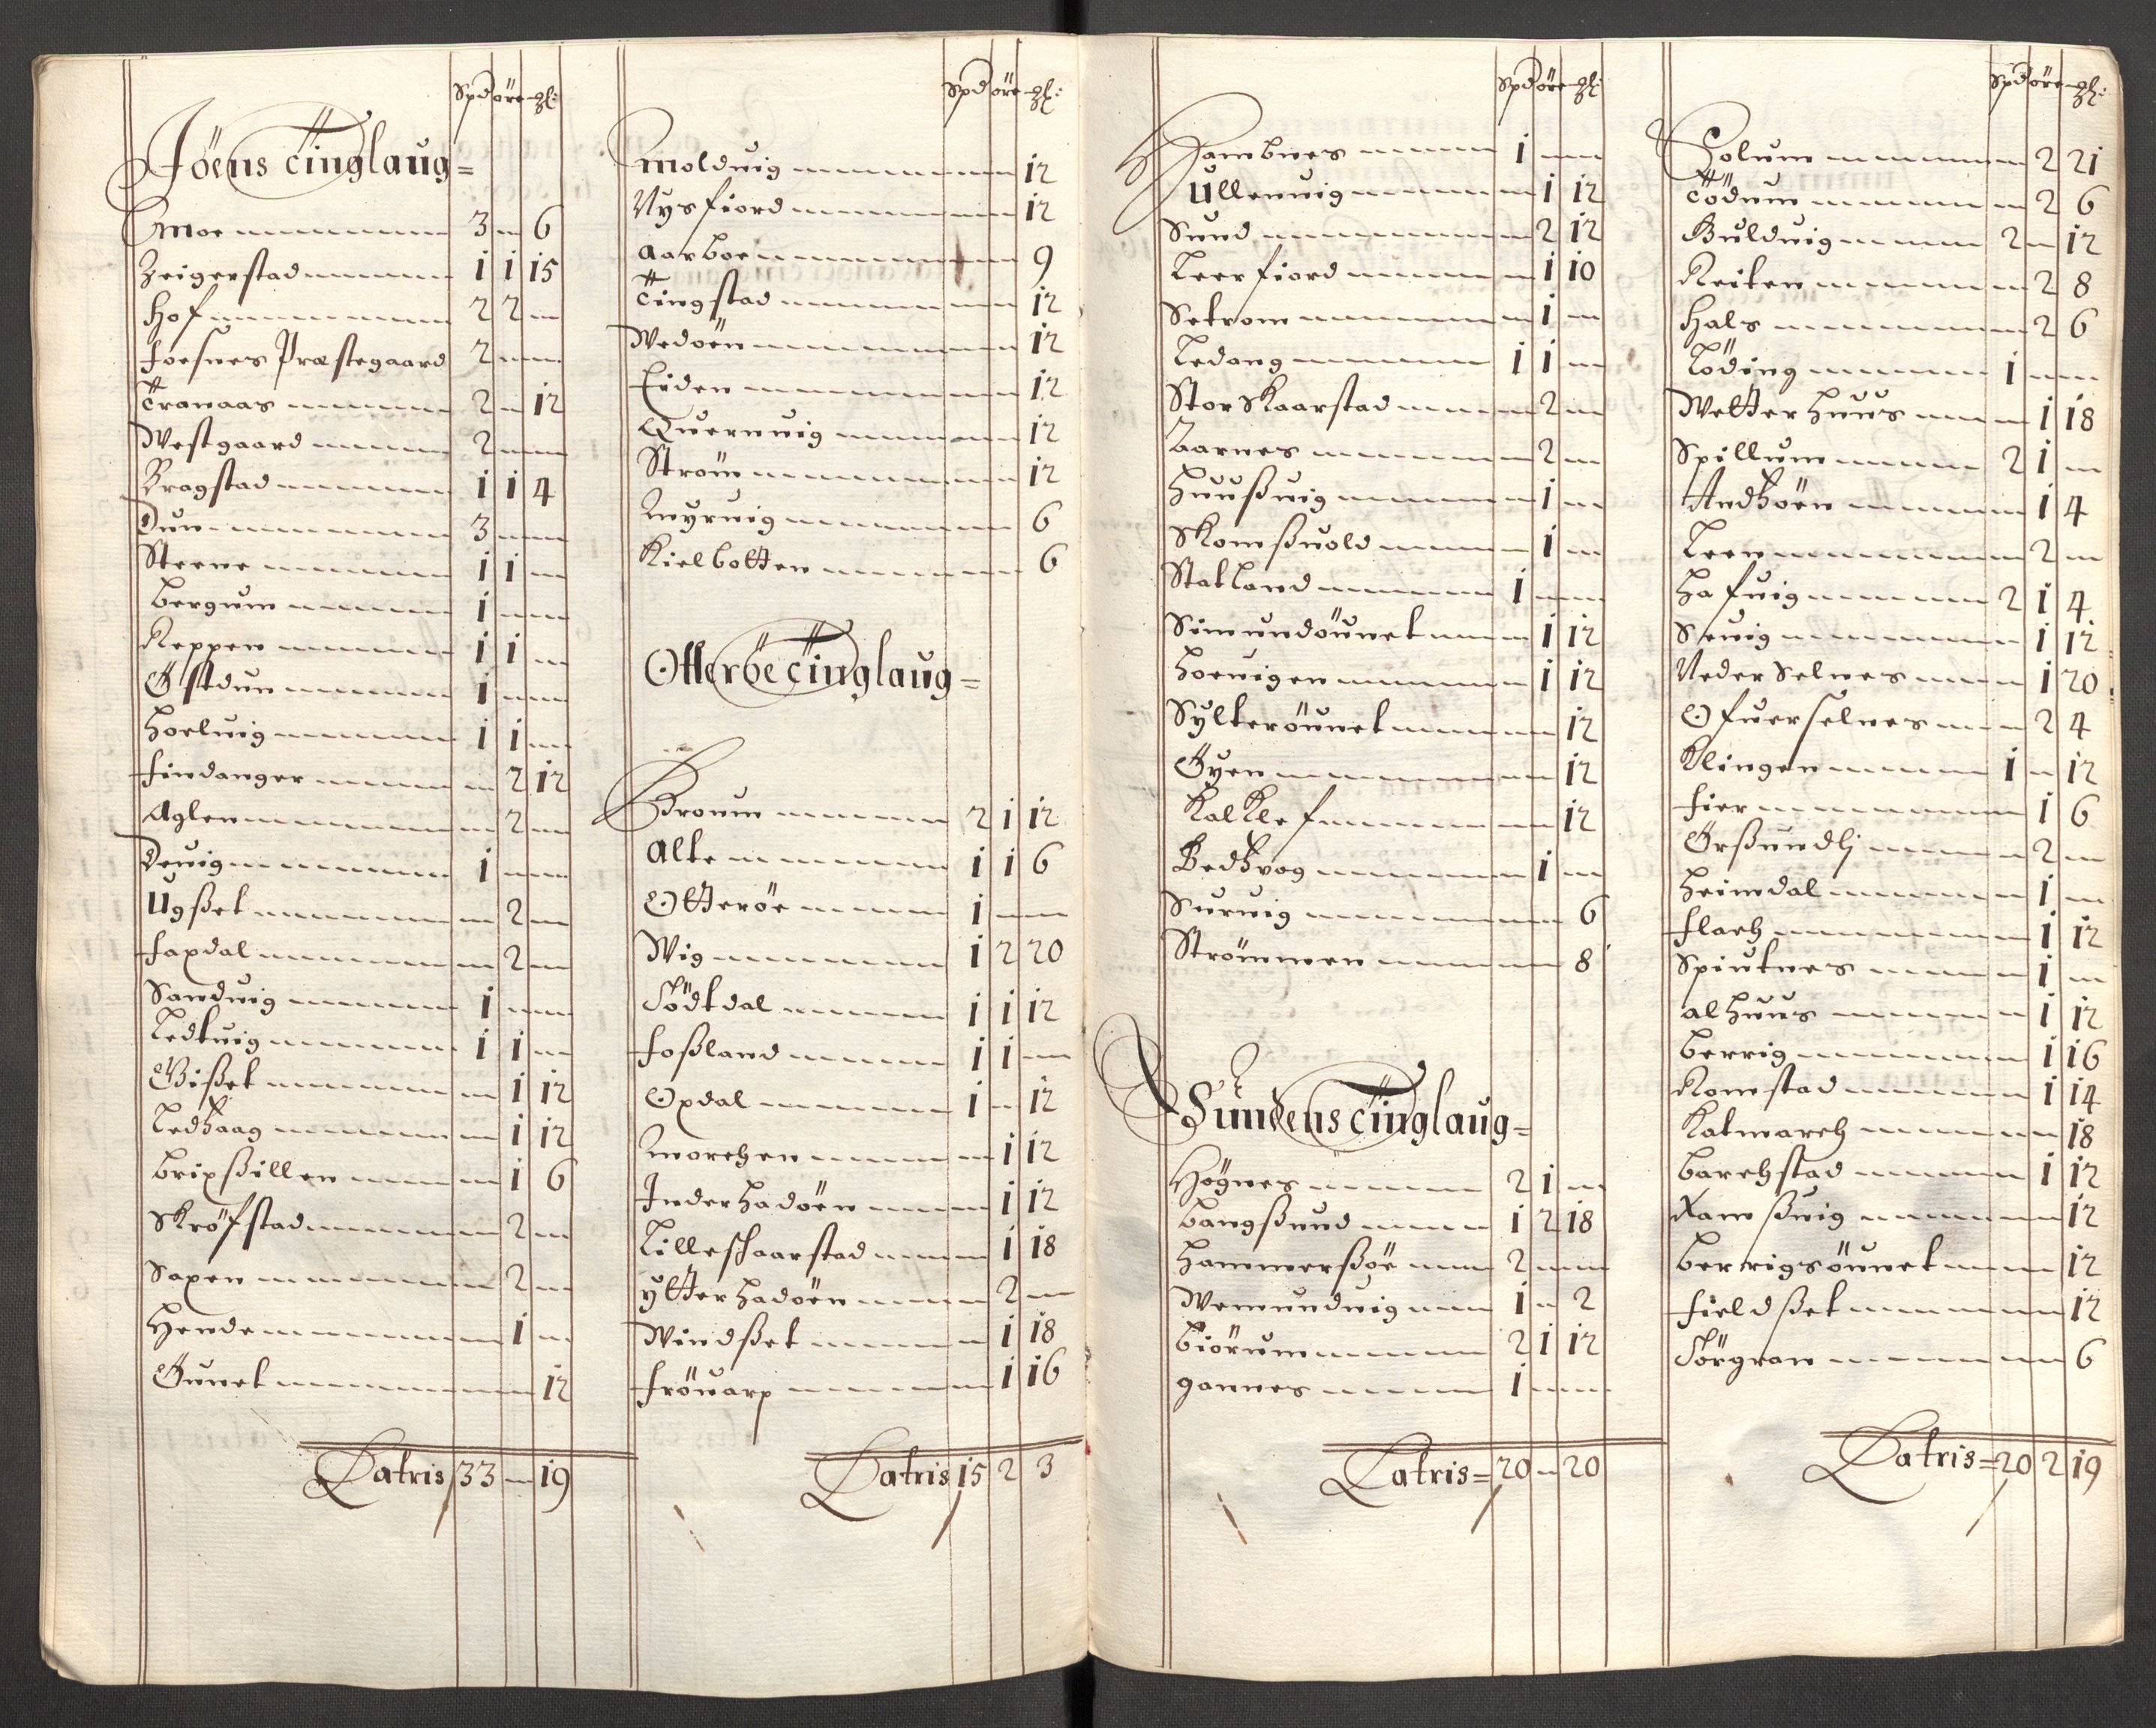 Spd öre ₰:
Föens tinglaug =
Moe 3 6
Zeigerstad 1 1 15
Hof 2 2
Foesnes Præstegaard 2
Tranaas 2 12
Westgaard 2
Bragstad 1 1 4
Dun 3
Steene 1 1
Bergum 1
Reppen 1 1
Østdun 1
Hoeluig 1 1
Findanger 2 12
Aglen 2
Deuig 1
Ugsset 2
Faxdal 2
Sanduig 1
Ledtuig 1 1
Gisset 1 12
Ledhaag 1 12
Brixsillen 1 6
Skröfstad 2
Saxen 2
Hende 1
Øunet 12
Latris 33 19
Spd öre
Molduig 12
Nysfiord 12
Aarboe 9
Tingstad 12
Wedöen 12
Eiden 12
Quernuig 12
Ström 12
Myruig 6
Kielbotten 6
Otteröe tinglaug =
Broum 2 1 12
Alte 1 1 6
Otteröe 1
Wig 1 2 20
Södtdal 1 1 12
Fossland 1 1
Opdal 1 12
Morchen 1 12
Inderhadöen 1 12
Lilleschaarstad 1 18
Ytterhadöen 2
Windsset 1 18
Fröuarp 1 16
Latris 15 2 3
Spd öre
Hambnes 1
Ullenuig 1 12
Sund 2 12
Leerfiord 1 10
Setrom 1
Ledang 1 1
Storskaarstad 2
Aarnes 2
Huussuig 1
Skomssuold 1
Statland 1
Simundöunet 1 12
Hoeuigen 1 12
Sylteröunet 12
Øyen 12
Kalklef 12
Bedhvog 1
Suruig 6
Strömmen 8
Sundens tinglaug =
Høgnes 2 1
Bangssund 1 2 18
Hammerssöe 2
Wemunduig 1 2
Biörum 2 1 12
Gannes 1
Latris = 20 20
Spd öre
Solum 2 21
Tödum 2 6
Bulduig 2 12
Reiten 2 8
Hals 2 6
Löding 1
Wetterhuus 1 18
Spillum 2 1
Andhöen 1 4
Leen 2
Hafuig 2 1 4
Seuig 1 12
Neder Selnes 1 20
Ofuerselnes 2 4
Klingen 1 12
Fier 1 6
Ørssundlj 2
Heimdal 1
Flach 1 12
Spiutnes 1
Alhuus 1 12
Berrig 1 16
Romstad 1 14
Katmarch 18
Barchstad 1 12
Ramssuig 12
Berrigsöunet 12
Fieldsset 12
Sörgran 6
Latris = 20 2 19